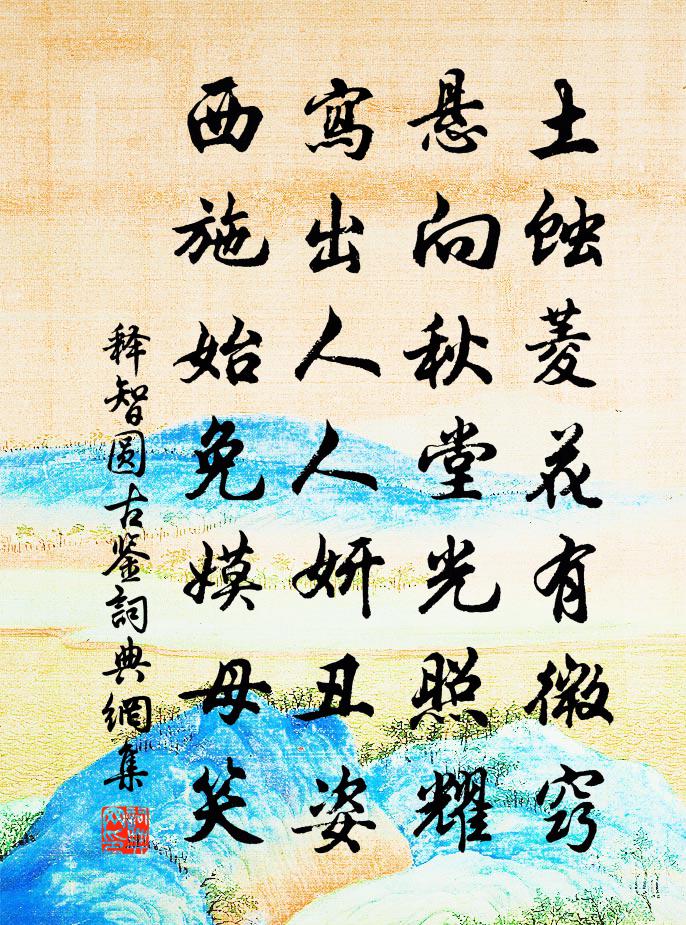 土蚀菱花有微窍
悬向秋堂光照耀
寫出人人妍丑姿
西施始免嫫母笑
释智圆古鉴詞典網集